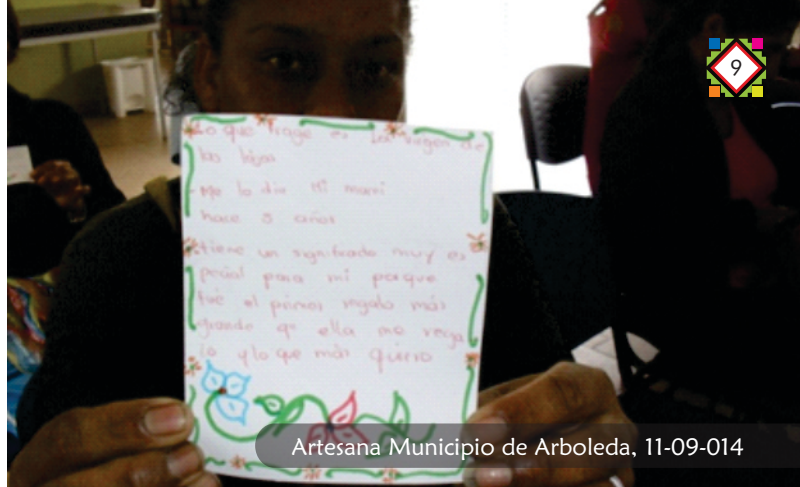 9
Lo que trage es La virgen de
las lajas
- Me lo dio Mi mami
hace 5 años
tiene un significado muy es
pecial para mi porque
fue el primer regalo más
grande q' ella me rega
lo y lo que más quiero
Artesana Municipio de Arboleda, 11-09-014